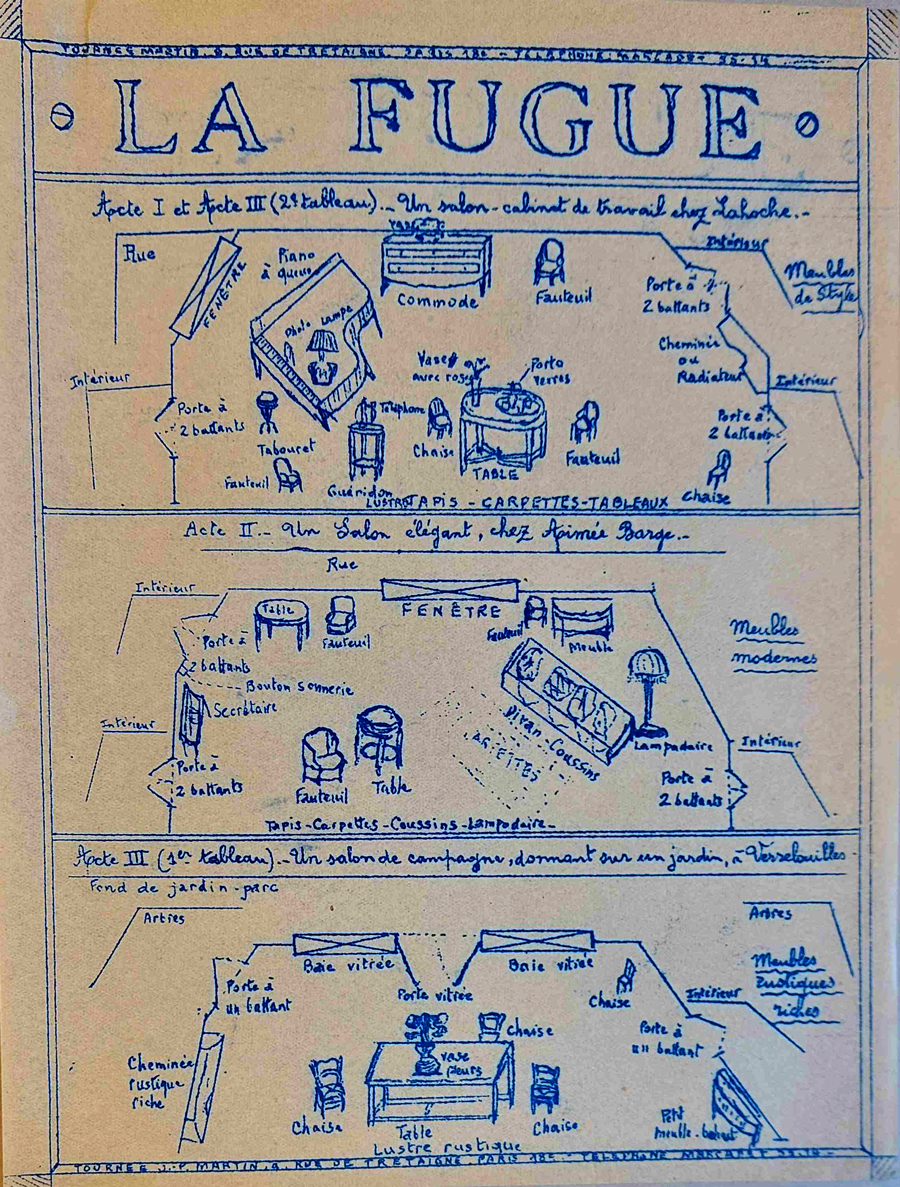 TOURNEE MARTIN. 9. RUE DE TRETAIGNE. PARIS 18e - TELEPHONE. MARCADET
LA FUGUE
Acte I et Acte III (2e tableau)._ Un salon-cabinet de travail chez Lahoche.-
Rue
FENÊTRE
Piano
à queue
Photo Lampe
Vase
Commode
Fauteuil
Intérieur
Porte à
2 battants
Meubles
de Style
Cheminée
ou
Radiateur
Intérieur
Intérieur
Porte à
2 battants
Tabouret
Fauteuil
Téléphone
Guéridon
Vase
avec roses
Porto
verres
Chaise
TABLE
Fauteuil
Porte à
2 battants
Chaise
LUSTRE TAPIS - CARPETTES-TABLEAUX
Acte II._ Un Salon élégant, chez Aimée Barge._
Rue
Intérieur
Table
Fauteuil
FENÊTRE
Fauteuil
Meuble
Meubles
modernes
Porte à
2 battants
Bouton sonnerie
Secrétaire
Intérieur
Divan-Coussins
Lampadaire
Intérieur
Porte à
2 battants
Fauteuil
Table
Porte à
2 battants
Tapis-Carpettes-Coussins-Lampadaire-
Acte III (1er tableau)._Un salon de campagne, donnant sur un jardin, à
Fond de jardin-parc
Arbres
Arbres
Baie vitrée
Baie vitrée
Porte vitrée
Porte à
un battant
Chaise
Intérieur
Meubles
rustiques
riches
Porte à
un battant
Cheminée
rustique
riche
Chaise
vase
fleurs
Chaise
Table
Chaise
Petit
meuble-bahut
Lustre rustique
TOURNEE J.-P. MARTIN. 9. RUE DE TRETAIGNE. PARIS 18e - TELEPHONE MARCADET